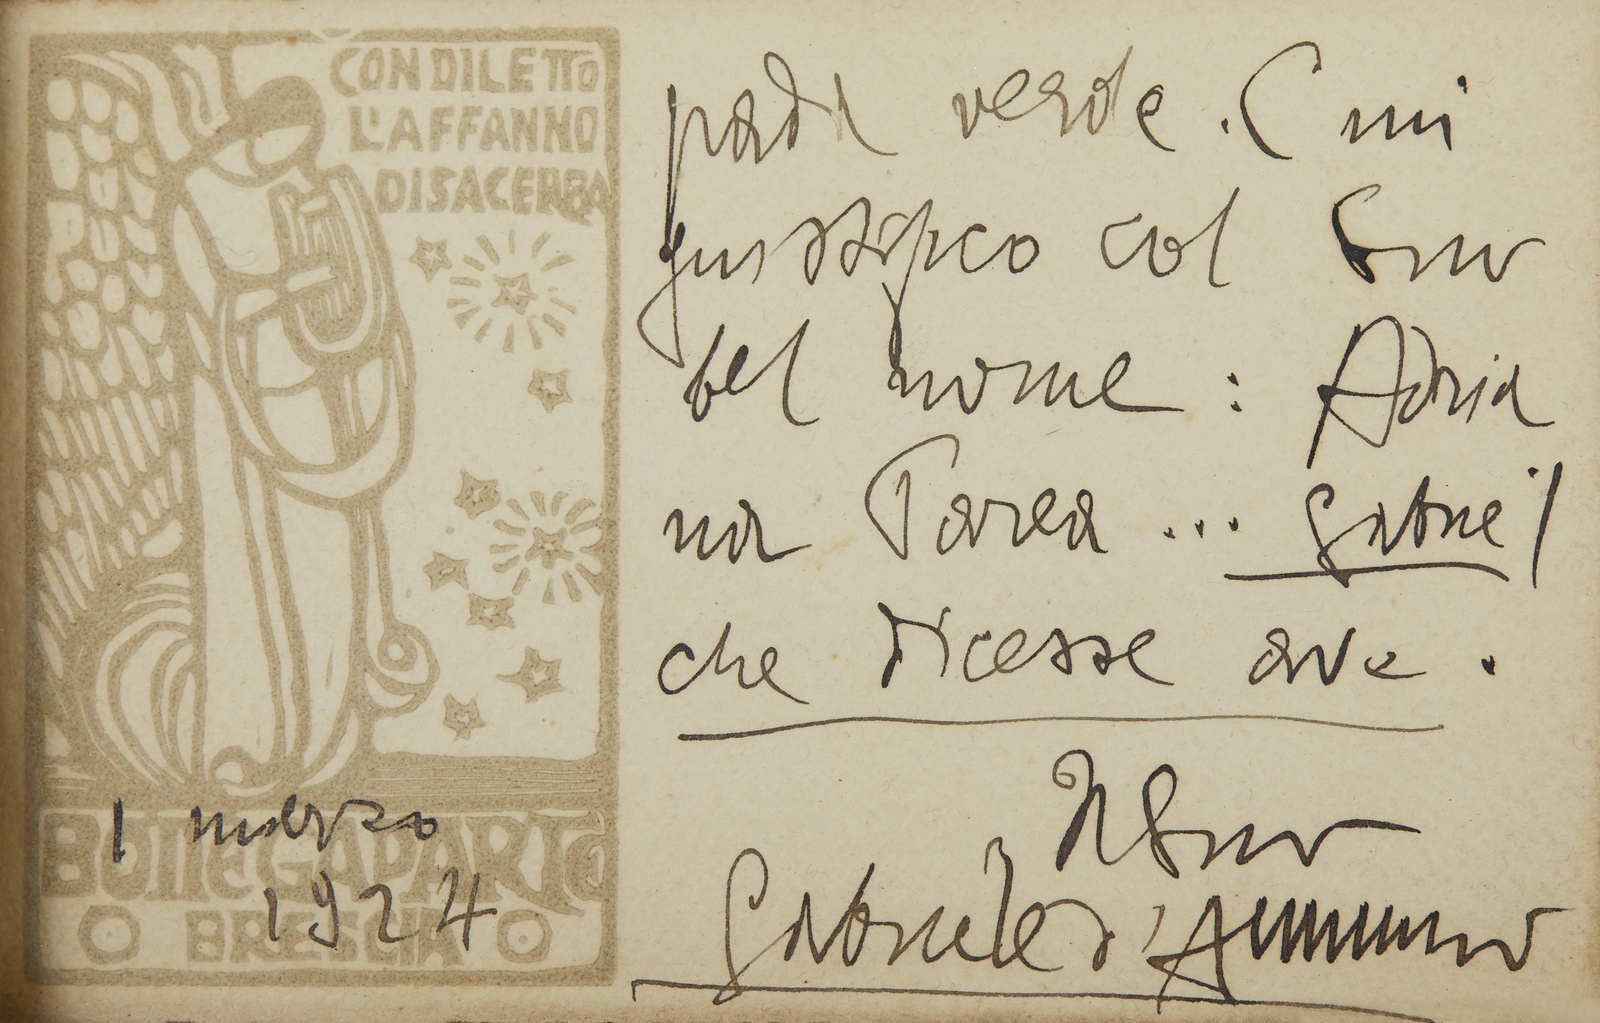 CON DILETTO
L'AFFANNO
DISACERBA
BOTTEGA D'ARTE
BRESCIA
1 marzo
1924
verde. E mi
giustifico col Suo
bel nome: Adria
na Parea... Gabriel
che dicesse ave.
Il Suo
Gabriele d'Annunzio